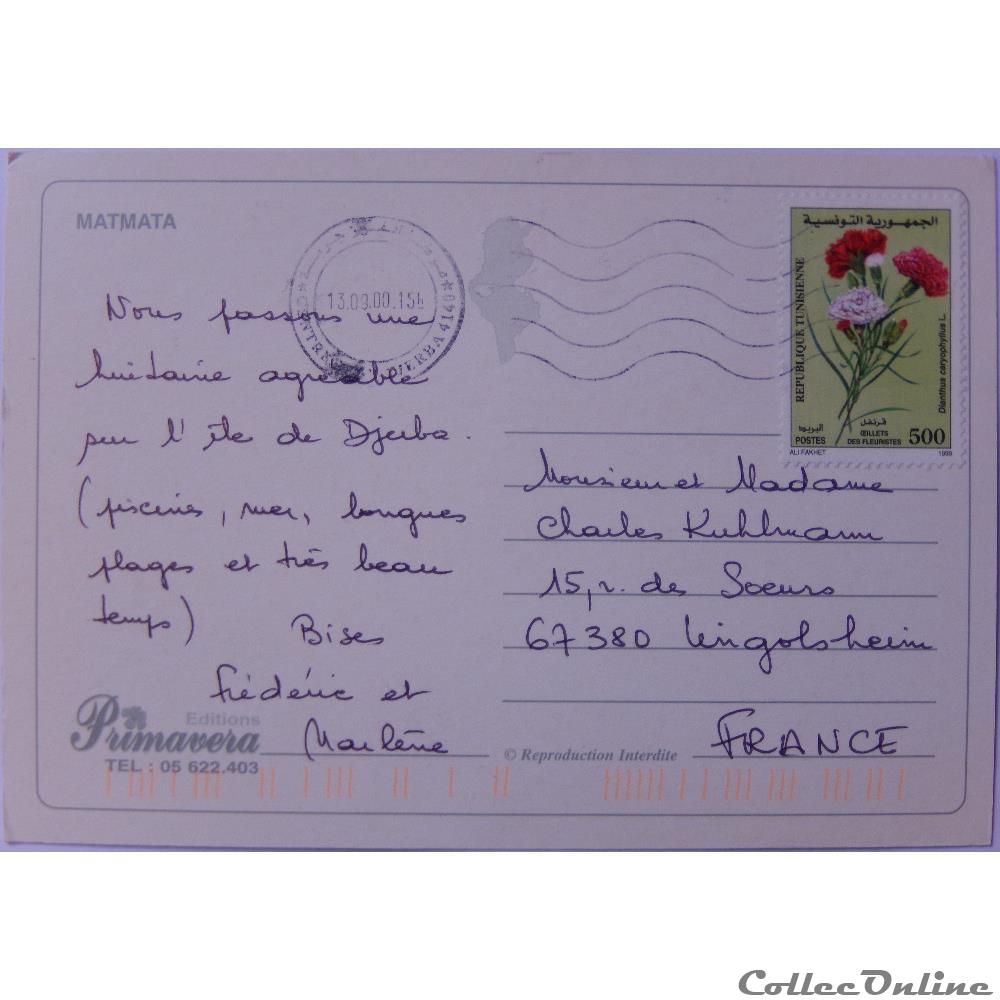 MATMATA
13.09.00.15h
DJERBA 4140
الجمهورية التونسية
REPUBLIQUE TUNISIENNE
Dianthus caryophyllus L.
قرنفل
البريد
ŒILLETS
DES FLEURISTES
POSTES
500
ALI FAKHET
1999
Nous passons une
huitaine agréable
sur l'île de Djerba.
(piscines, mer, longues
plages et très beau
temps)
Bises
Frédéric et
Marlène
Monsieur et Madame
Charles Kuhlmann
15, r. des Soeurs
67380 Lingolsheim
FRANCE
Editions
Primavera
TEL : 05 622.403
© Reproduction Interdite
CollecOnline